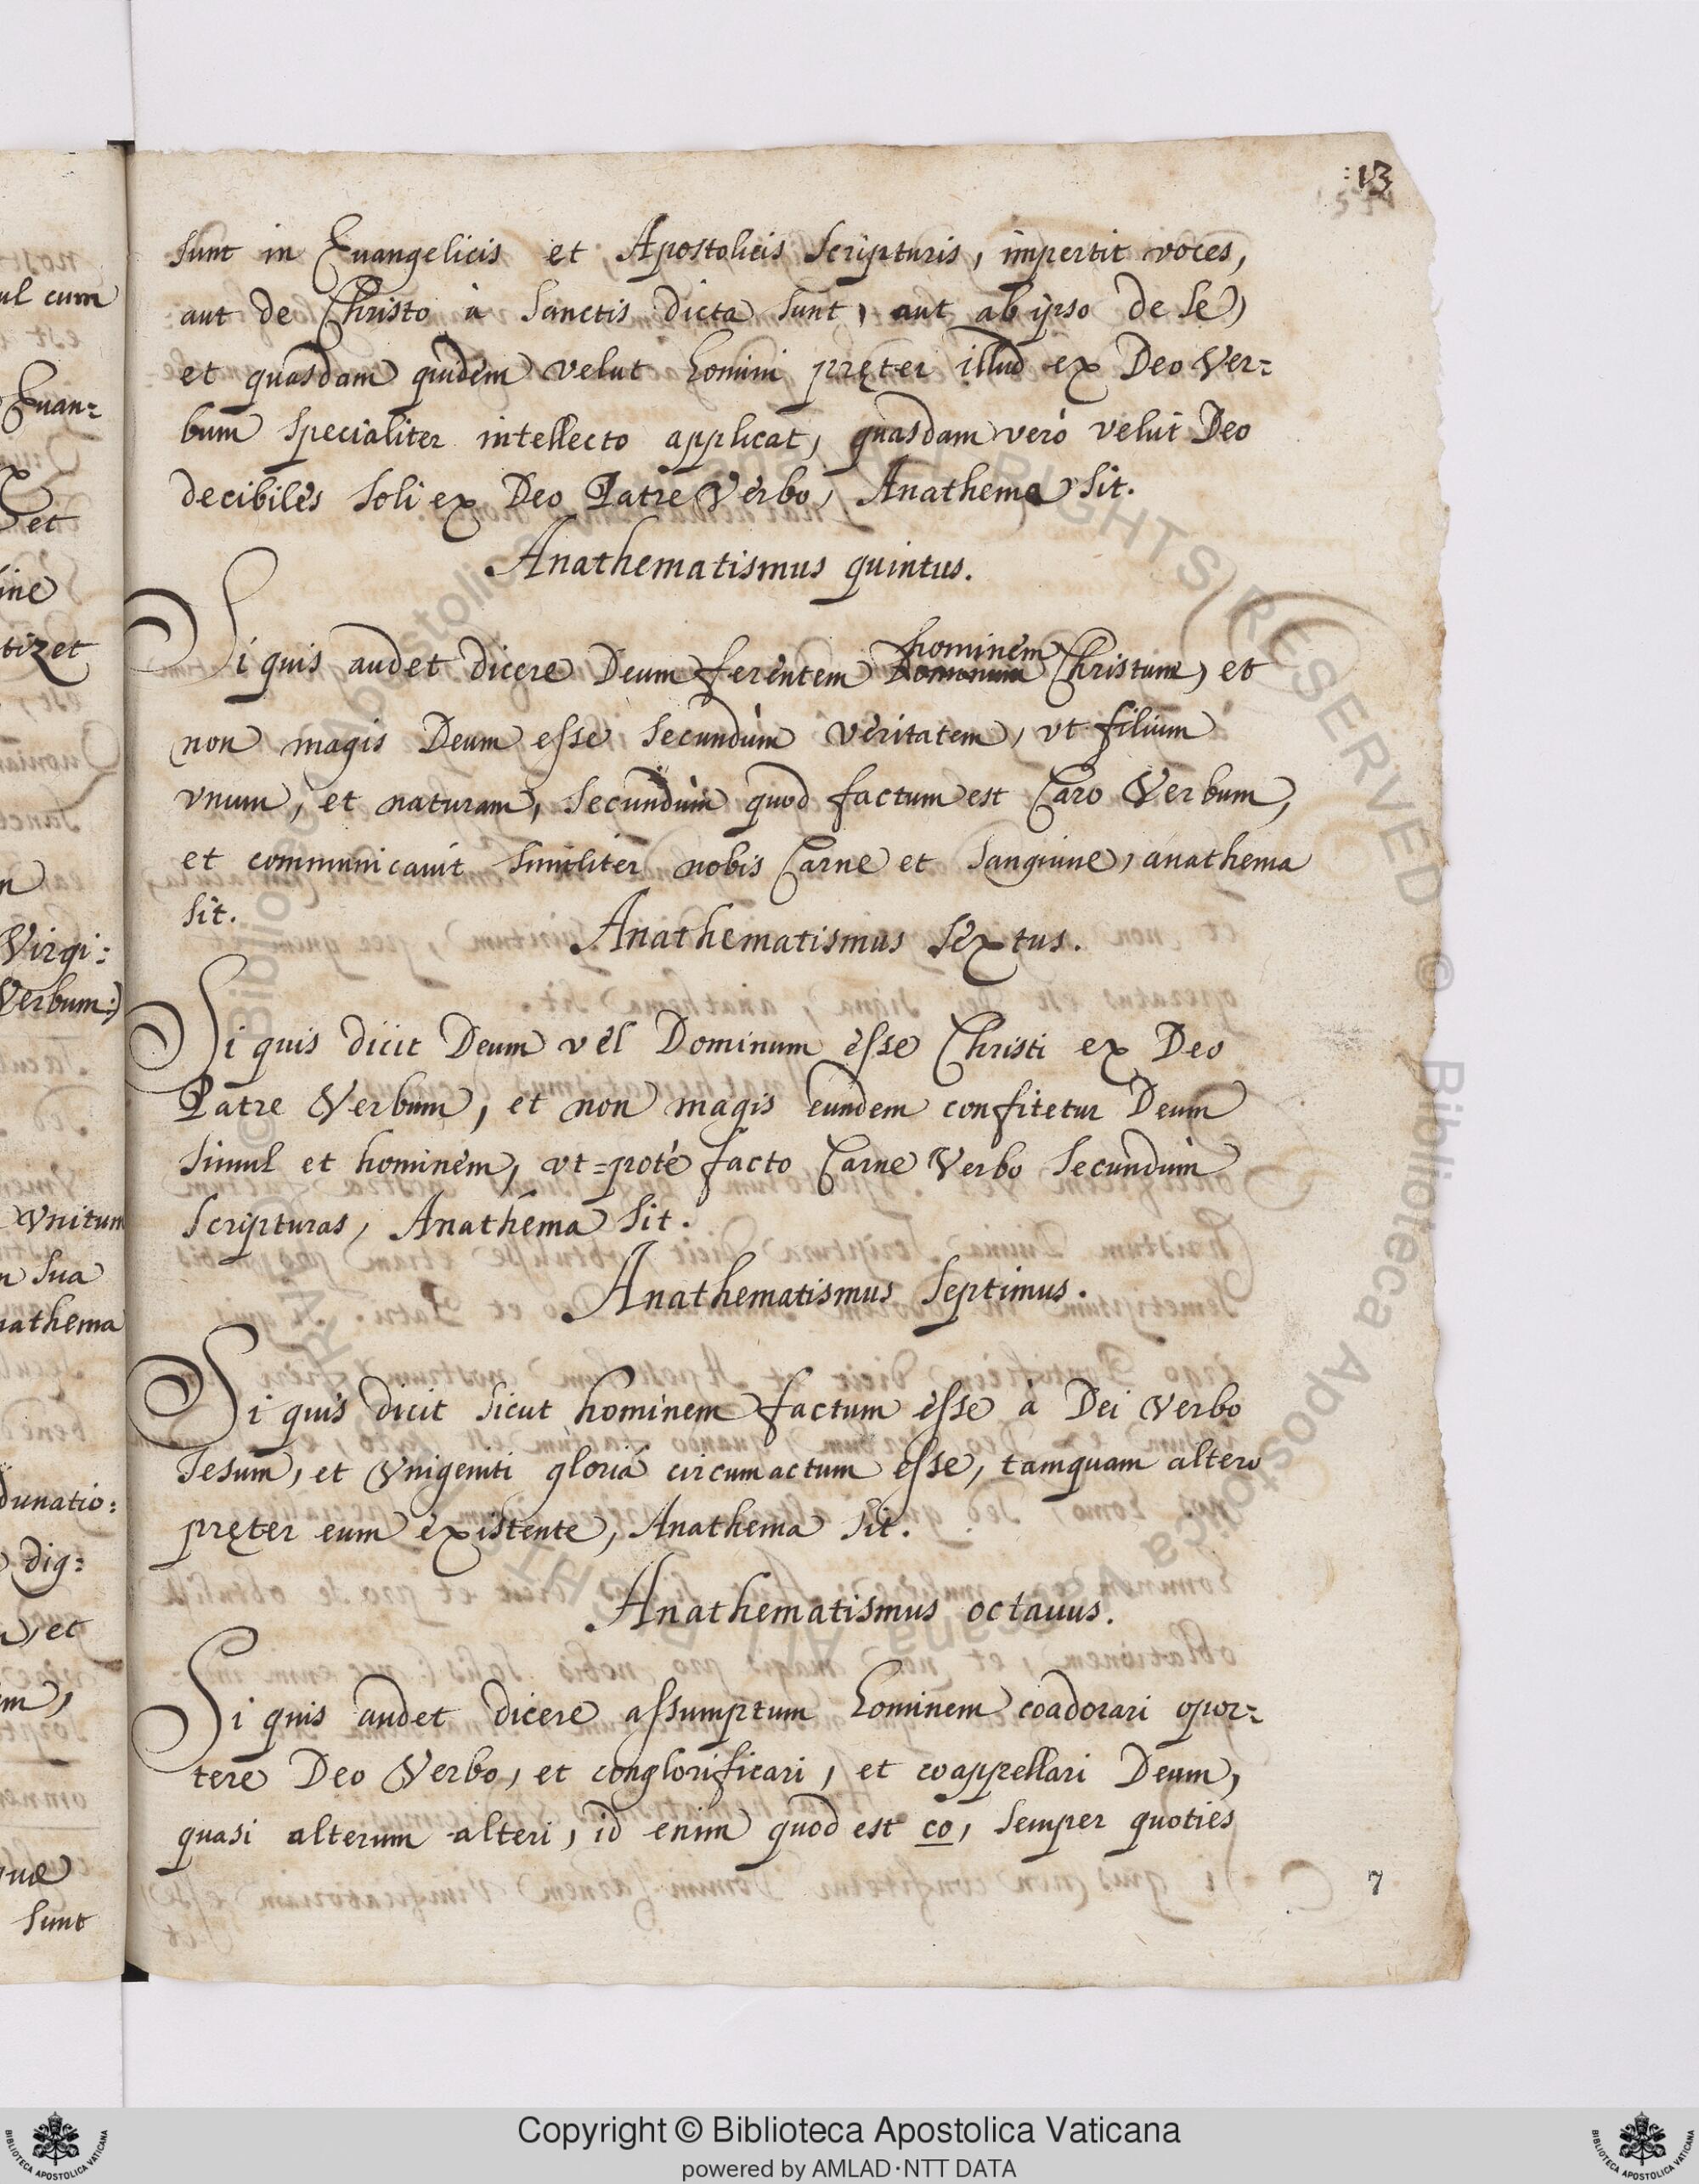 :13
sunt in Euangelicis et Apostolicis scripturis, impertit voces,
aut de Christo à Sanctis dicta sunt, aut ab ipso de se,
et quasdam quidem velut homini pręter illud ex Deo Ver=
bum specialiter intellecto applicat, quasdam verò velut Deo
decibiles soli ex Deo Patre Verbo, Anathema sit.
Anathematismus quintus.
hominem
Si quis audet dicere Deum ferentem Dominum Christum, et
non magis Deum esse secundùm veritatem, vt filium
vnum, et naturam, secundùm quod factum est Caro Verbum,
et communicauit similiter nobis Carne et sanguine, anathema
sit.
Anathematismus sextus.
Si quis dicit Deum vel Dominum esse Christi ex Deo
Patre Verbum, et non magis eundem confitetur Deum
simul et hominem, vt=pote facto Carne Verbo secundùm
scripturas, Anathema sit.
Anathematismus septimus.
Si quis dicit sicut hominem factum esse à Dei Verbo
Jesum, et Vnigeniti gloriá circumactum esse, tamquam altero
pręter eum existente, Anathema sit.
Anathematismus octauus.
Si quis audet dicere assumptum hominem coadorari opor=
tere Deo Verbo, et conglorificari, et coappellari Deum,
quasi alterum alteri, id enim quod est co, semper quoties
7
ul cum
Euan=
et
tizet
Virgi:
Verbum:)
vnitum
sua
dunatio:
dig:
et
sunt
© Biblioteca Apostolica Vaticana ALL RIGHTS RESERVED
Copyright © Biblioteca Apostolica Vaticana
powered by AMLAD·NTT DATA
BIBLIOTECA APOSTOLICA VATICANA
BIBLIOTECA APOSTOLICA VATICANA